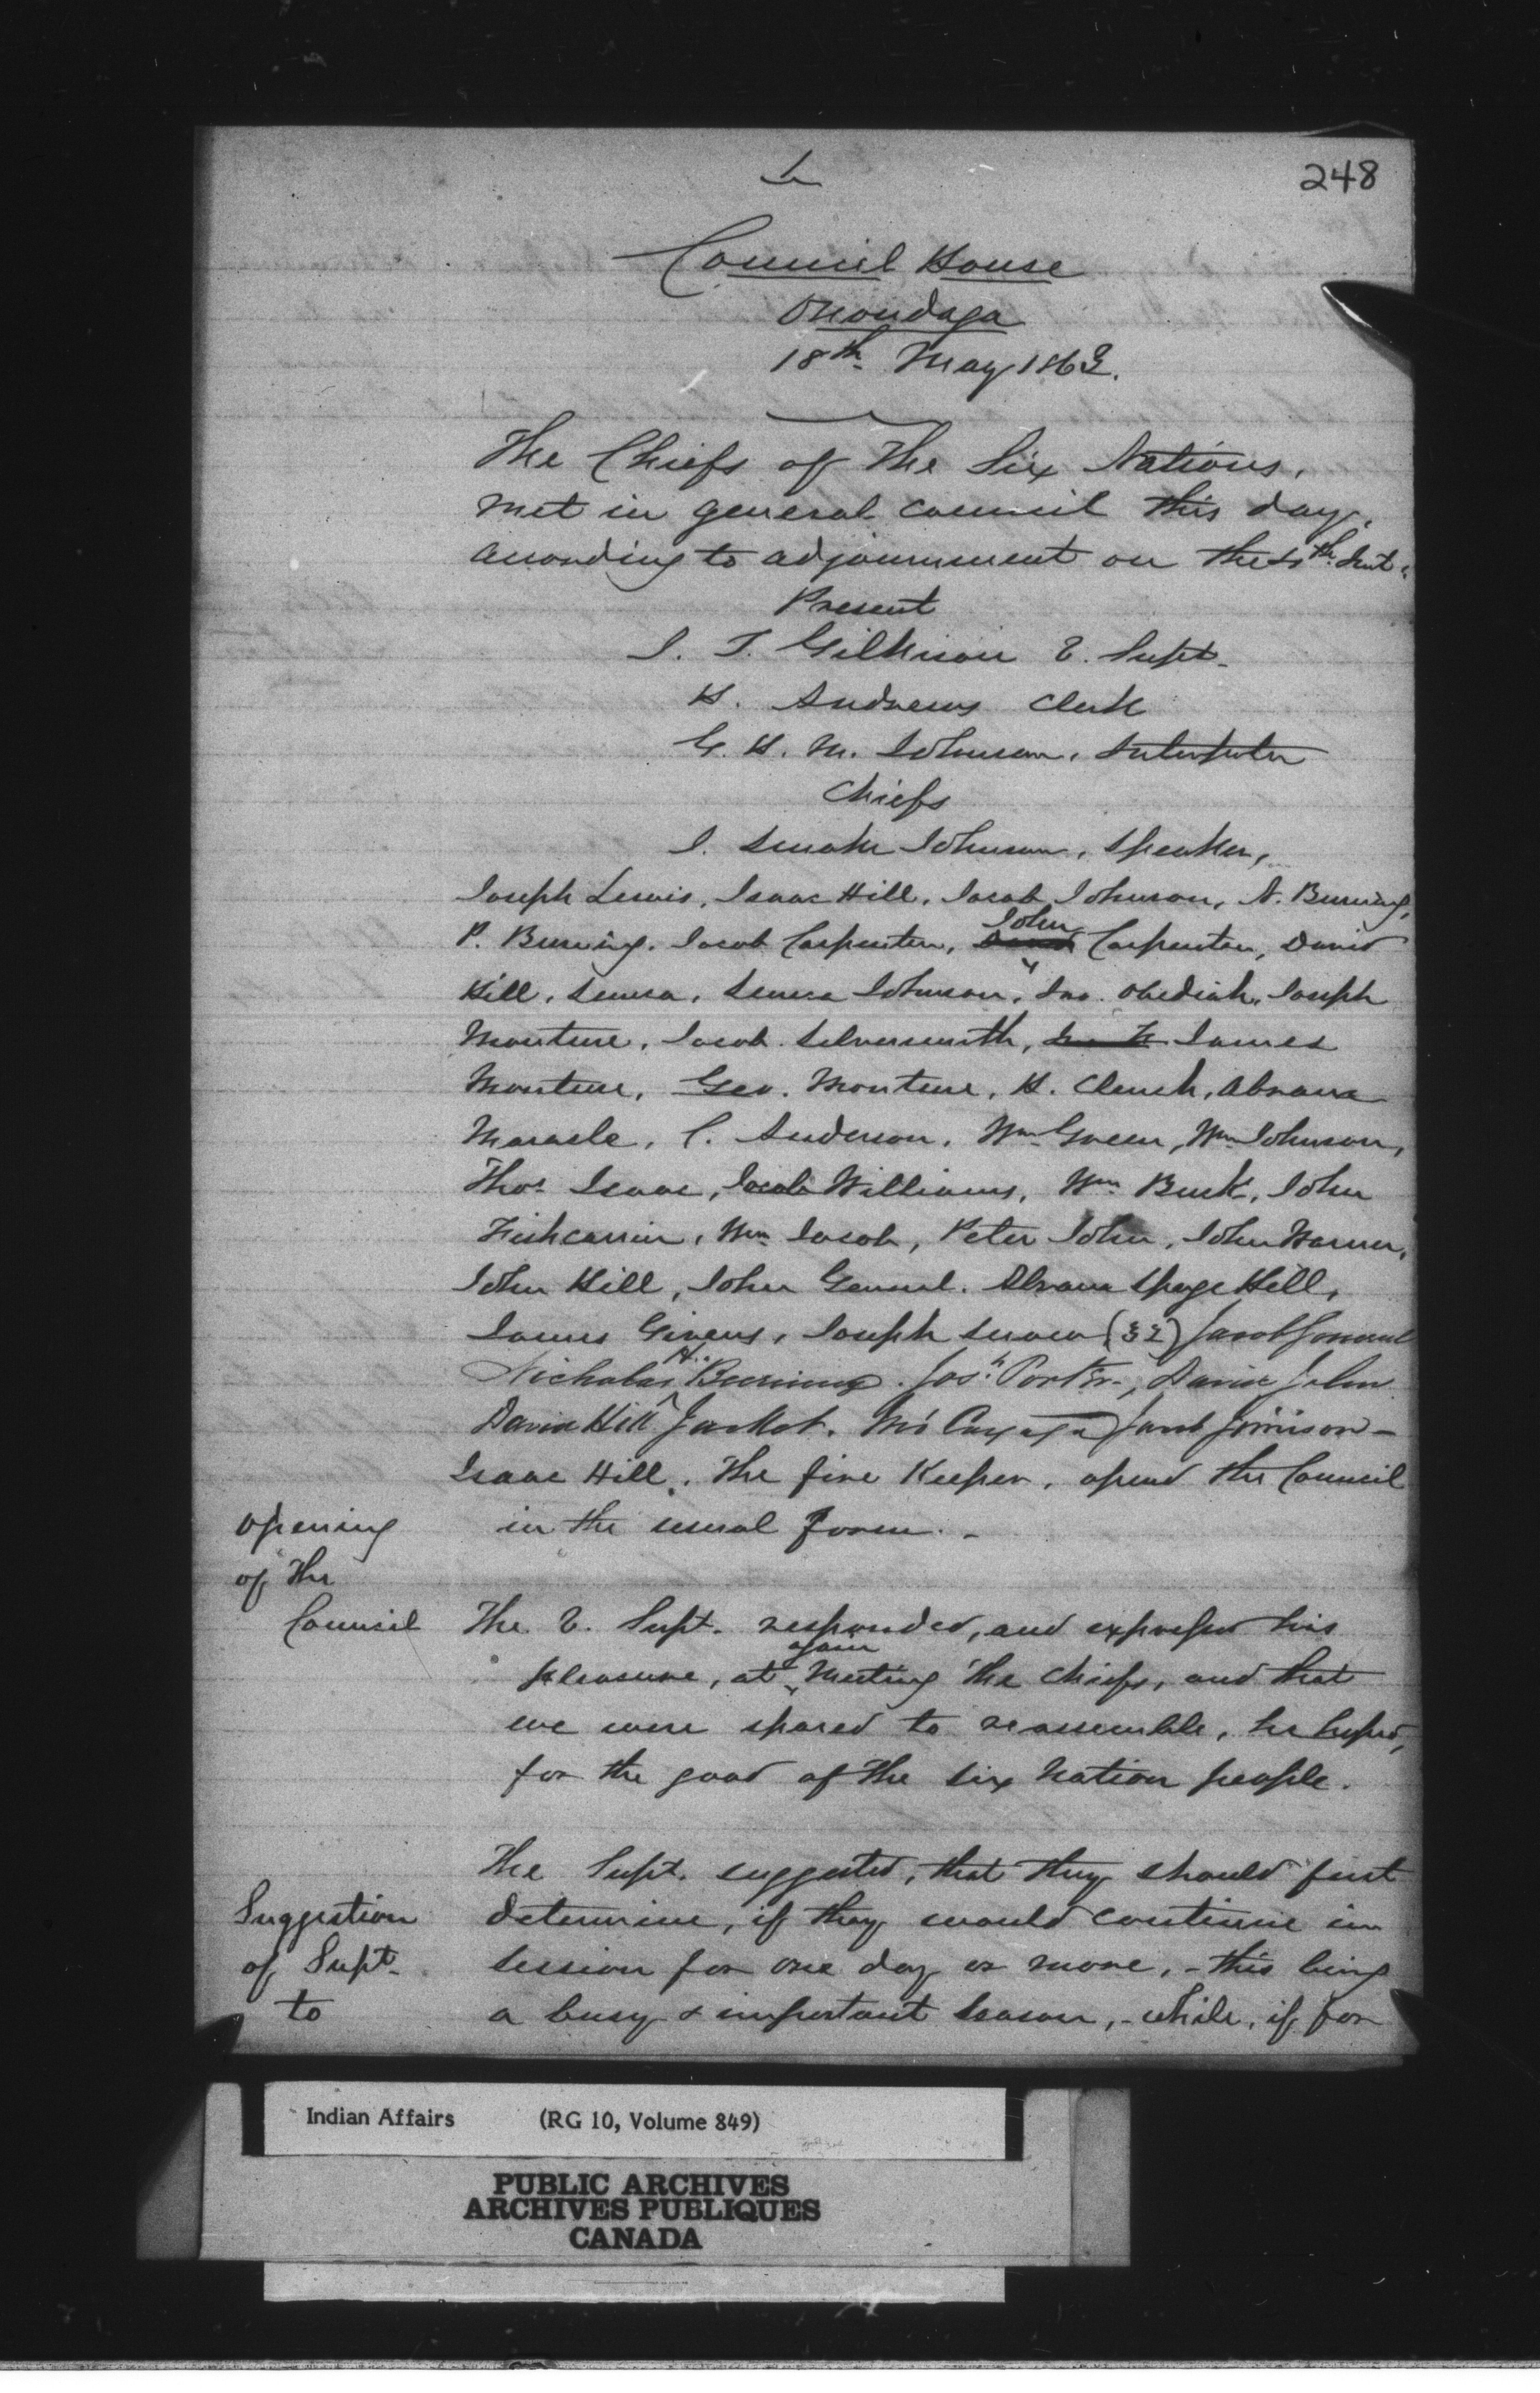 1
248
Council House
Onondaga
18th May 1863.
The Chiefs of the Six Nations,
met in general council this day,
according to adjournment on the Inst.
Present
J. T. Gilkison V. Supt.
H. Andrews Clerk
G. H. M. Johnson, Interpreter
Chiefs
J. Smoke Johnson, Speaker,
Joseph Lewis, Isaac Hill, Jacob Johnson, N. Burning,
P. Burning, Jacob Carpenter, John Carpenter, David
Hill, Seneca, Seneca Johnson, Jno. Obediah, Joseph
Monture, Jacob Silversmith, James
Monture, Geo. Monture, H. Clench, Abram
Maracle, C. Anderson, Wm Green, Wm Johnson,
Thos Isaac, Jacob Williams, Wm Buck, John
Fishcarrier, Wm Jacob, Peter John, John Warner,
John Hill, John General, Abram Hill,
James Givens, Joseph Snow (32) Jacob General
Nicholas H. Burning. Jos. Porter, David John
David Hill Cayuga Jacob Jamison
Isaac Hill, The fire Keeper, opened the Council
in the usual form. -
opening
of the
Council
The V. Supt. responded, and expressed his
pleasure, at again meeting the chiefs, and that
we were spared to reassemble, he hoped,
for the good of the Six Nation people.
The Supt. suggested, that they should first
determine, if they would continue in
session for one day or more, - this being
a busy & important season, - while, if for
Suggestion
of Supt.
to
Indian Affairs (RG 10, Volume 849)
PUBLIC ARCHIVES
ARCHIVES PUBLIQUES
CANADA